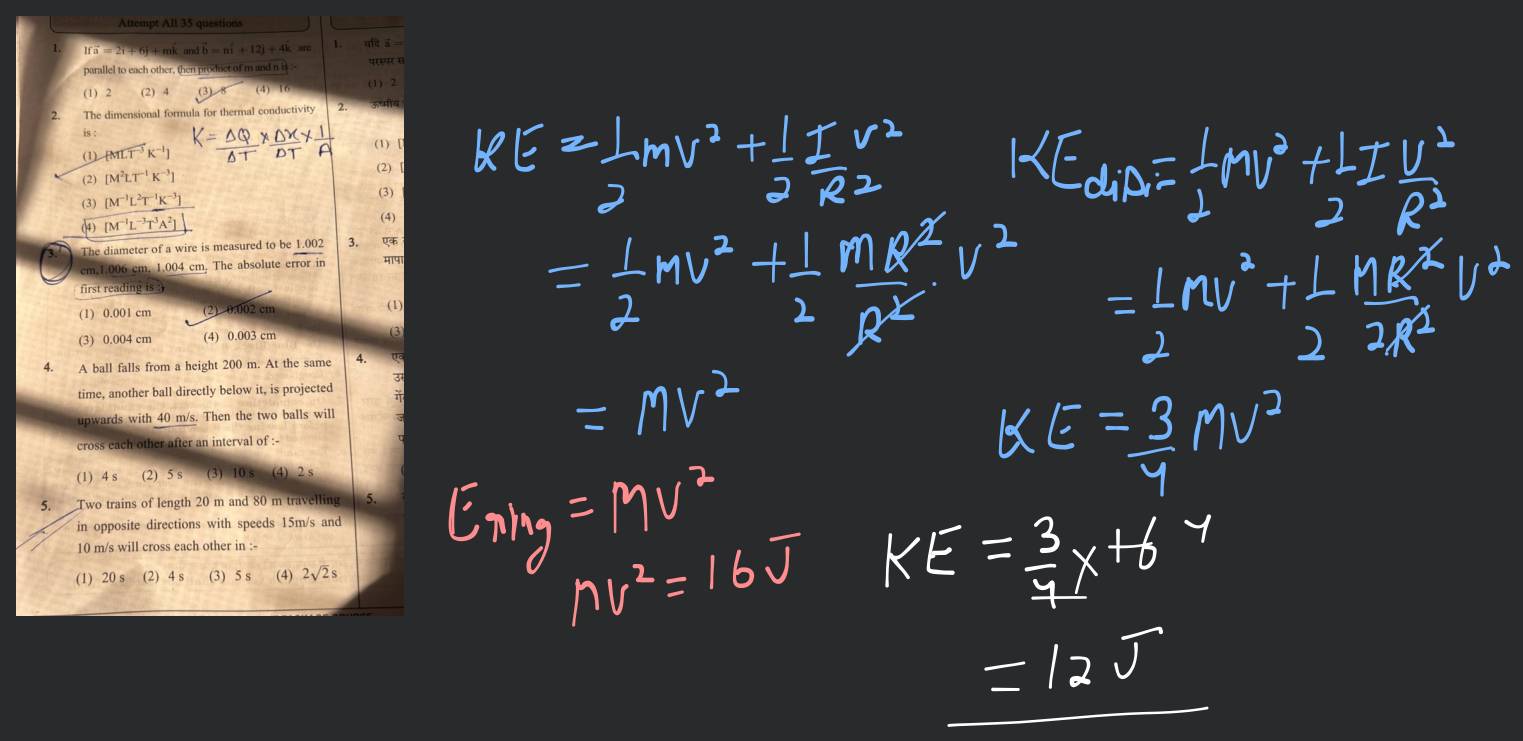 Attempt All 35 questions
1. If a⃗ = 2î + 6ĵ + mk̂ and b⃗ = nî + 12ĵ + 4k̂ are
parallel to each other, then product of m and n is :-
(1) 2 (2) 4 (3) 8 (4) 16
2. The dimensional formula for thermal conductivity
is :
K = ΔQ/ΔT × Δx/DT × 1/A
(1) [MLT⁻³K⁻¹]
(2) [M²LT⁻¹K⁻³]
(3) [M⁻¹L²T⁻¹K⁻³]
(4) [M⁻¹L⁻³T³A²]
3. The diameter of a wire is measured to be 1.002
cm, 1.006 cm, 1.004 cm. The absolute error in
first reading is :-
(1) 0.001 cm (2) 0.002 cm
(3) 0.004 cm (4) 0.003 cm
4. A ball falls from a height 200 m. At the same
time, another ball directly below it, is projected
upwards with 40 m/s. Then the two balls will
cross each other after an interval of :-
(1) 4 s (2) 5 s (3) 10 s (4) 2 s
5. Two trains of length 20 m and 80 m travelling
in opposite directions with speeds 15m/s and
10 m/s will cross each other in :-
(1) 20 s (2) 4 s (3) 5 s (4) 2√2 s
1. यदि a⃗ =
(1) 2
2.
(1)
(2)
(3)
(4)
3. एक
(1)
(3)
4.
5.
KE = 1/2 mv² + 1/2 I v²/R²
= 1/2 mv² + 1/2 mR²/R² · v²
= mv²
Ering = mv²
mv² = 16 J
KEdisc = 1/2 mv² + 1/2 I v²/R²
= 1/2 mv² + 1/2 mR²/2R² v²
KE = 3/4 mv²
KE = 3/4 × 16 4
= 12 J